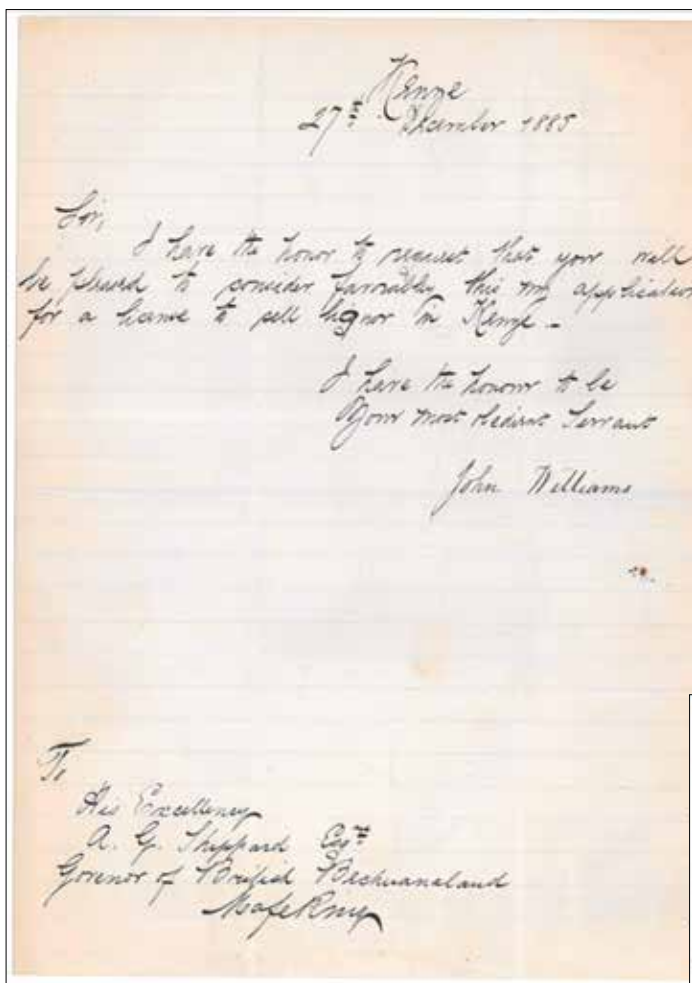 Kenye
27th December 1885
Sir,
I have the honor to request that your will
be pleased to consider favorably this my application
for a licence to sell liqnor in Kenye -
I have the honour to be
Your most obedient Servant
John Williams
To
His Excellency
A. G. Shippard Esqre
Govenor of British Bechuanaland
Mafeking